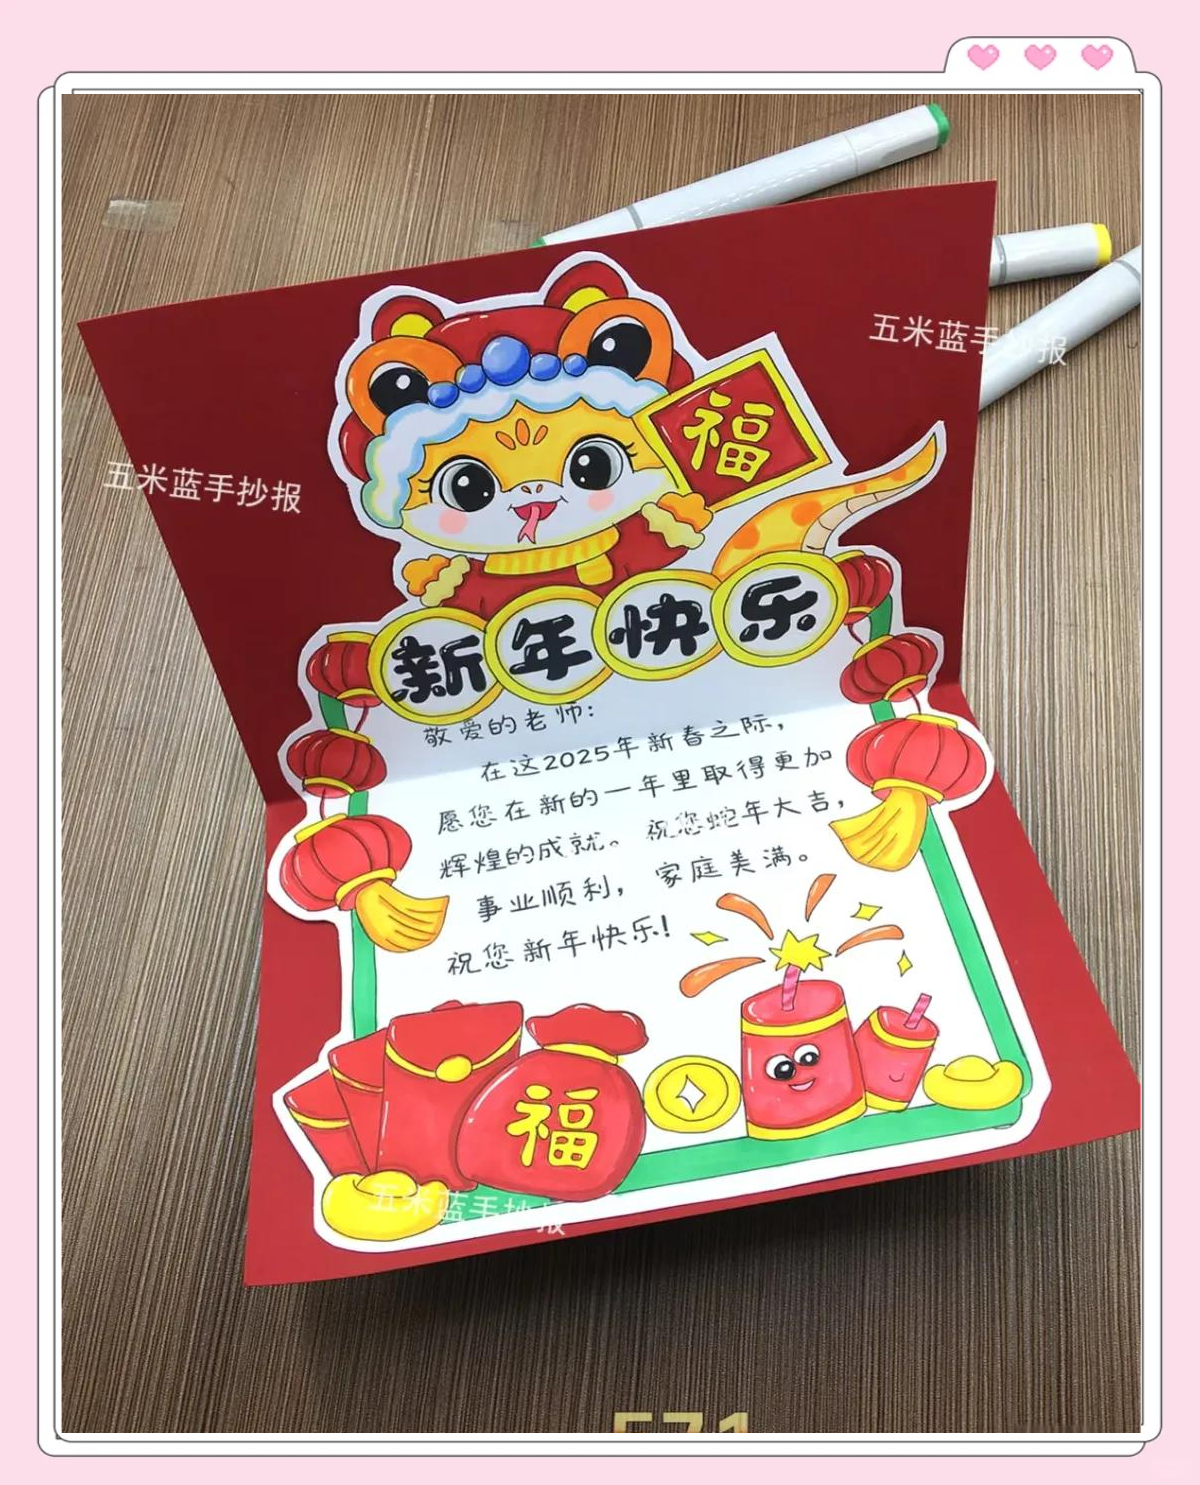 福
新年快乐
敬爱的老师:
在这2025年新春之际,
愿您在新的一年里取得更加
辉煌的成就。祝您蛇年大吉,
事业顺利,家庭美满。
祝您新年快乐!
福
五米蓝手抄报
五米蓝手抄报
五米蓝手抄报